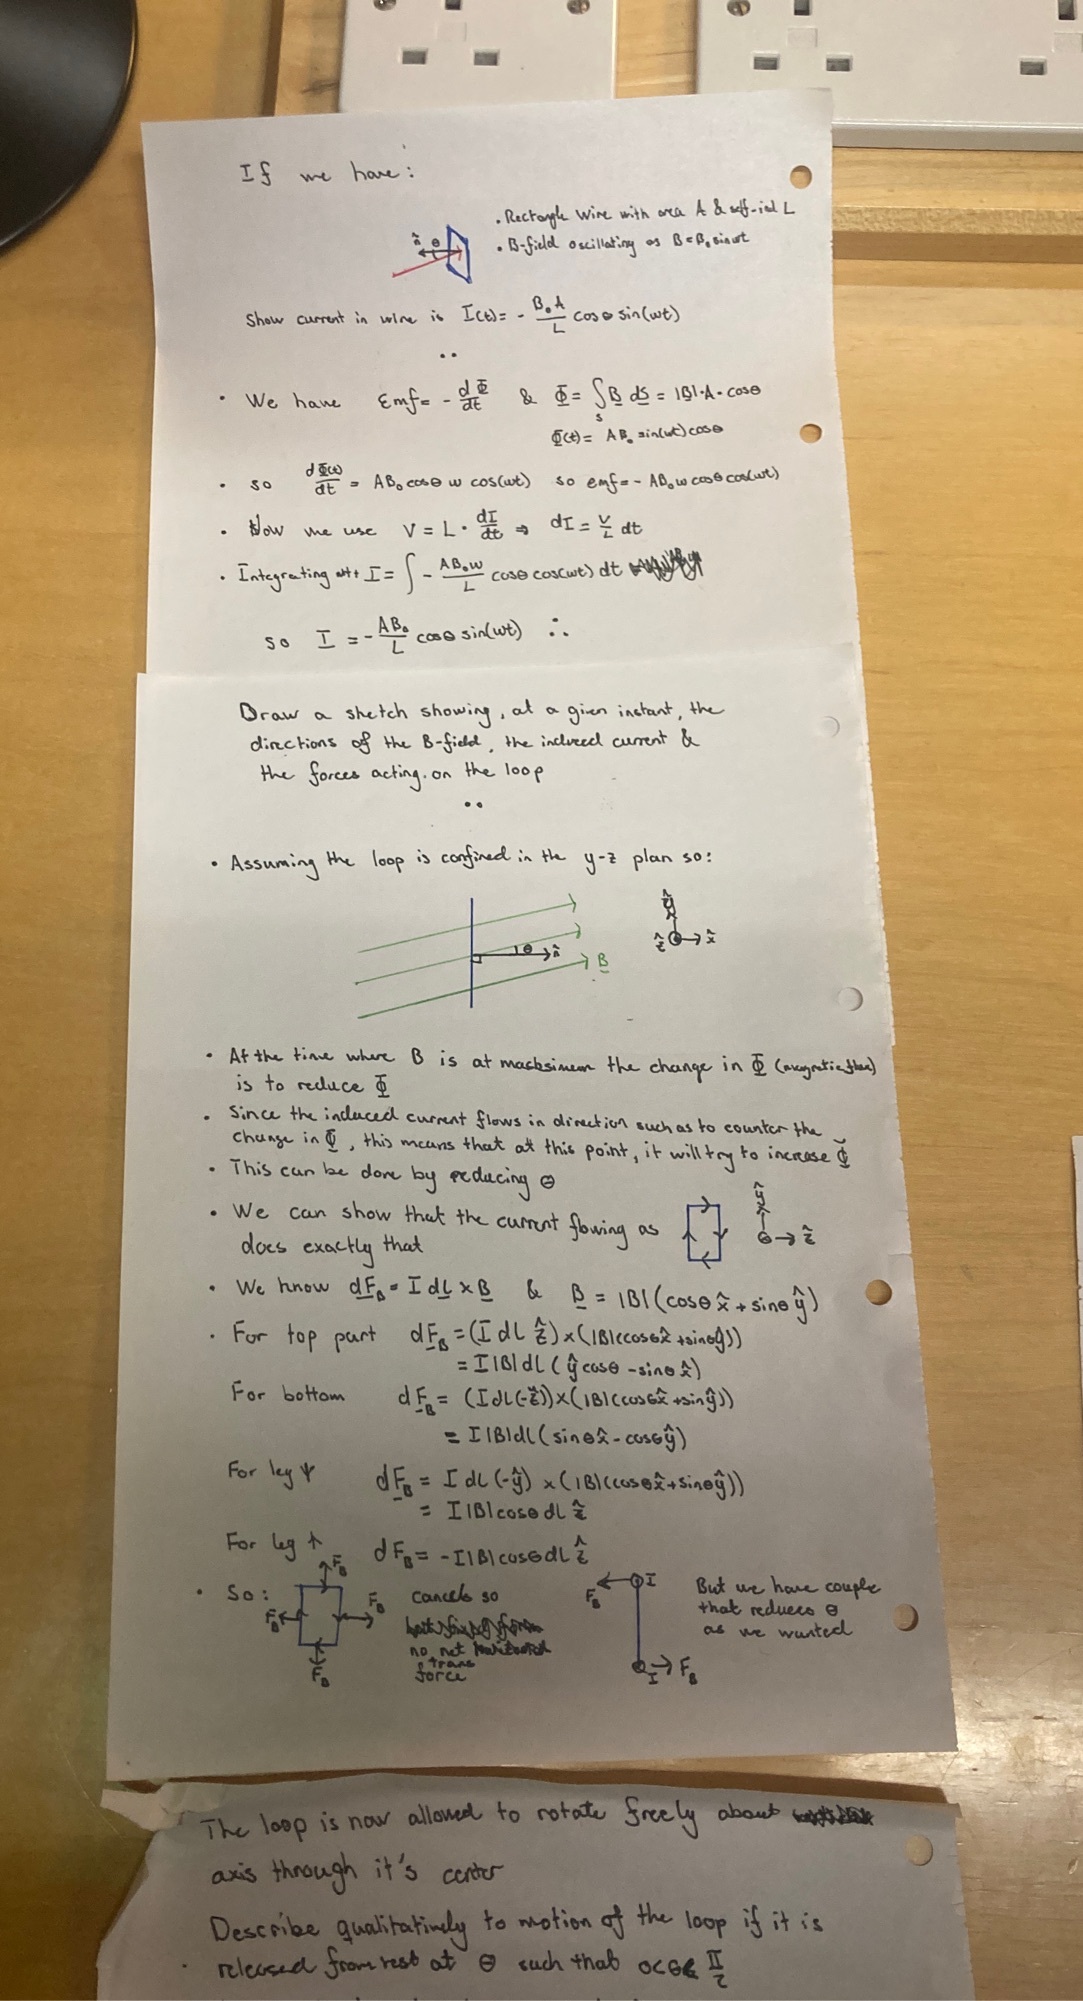 If we have:
. Rectangle wire with area A & self-ind L
. B-field oscillating as B=B₀sinωt
n̂ θ
Show current in wire is I(t)= - B₀A/L cosθ sin(ωt)
• We have Emf= - dΦ/dt & Φ= ∫ₛ B dS = |B|·A·cosθ
Φ(t)= AB₀ sin(ωt)cosθ
• so dΦ(t)/dt = AB₀cosθ ω cos(ωt) so emf= - AB₀ω cosθcos(ωt)
• Now we use V = L · dI/dt ⇒ dI = V/L dt
• Integrating I= ∫ - AB₀ω/L cosθ cos(ωt) dt
so I = - AB₀/L cosθ sin(ωt) ∴
Draw a sketch showing, at a given instant, the
directions of the B-field, the induced current &
the forces acting. on the loop
• Assuming the loop is confined in the y-z plan so:
θ n̂ B
ŷ ẑ x̂
• At the time where B is at macksimum the change in Φ (magnetic flux)
is to reduce Φ
• Since the induced current flows in direction such as to counter the
change in Φ, this means that at this point, it will try to increase Φ
• This can be done by reducing θ
• We can show that the current flowing as
does exactly that
ŷ ẑ
• We know dF_B = I dL × B & B = |B|(cosθ x̂ + sinθ ŷ)
• For top part dF_B = (I dL ẑ)×(|B|(cosθx̂ +sinθŷ))
= I|B|dL(ŷcosθ -sinθ x̂)
For bottom dF_B = (IdL(-ẑ))×(|B|(cosθx̂ +sinŷ))
= I|B|dL(sinθx̂ - cosθŷ)
For leg ↓ dF_B = I dL(-ŷ) × (|B|(cosθx̂+sinθŷ))
= I|B|cosθ dL ẑ
For leg ↑ dF_B = -I|B|cosθdL ẑ
• So: F_B F_B F_B F_B
cancels so
no net
trans
force
F_B I
I F_B
But we have couple
that reduces θ
as we wanted
The loop is now allowed to rotate freely about
axis through it's center
Describe qualitatively to motion of the loop if it is
• released from rest at θ such that 0<θ< π/2